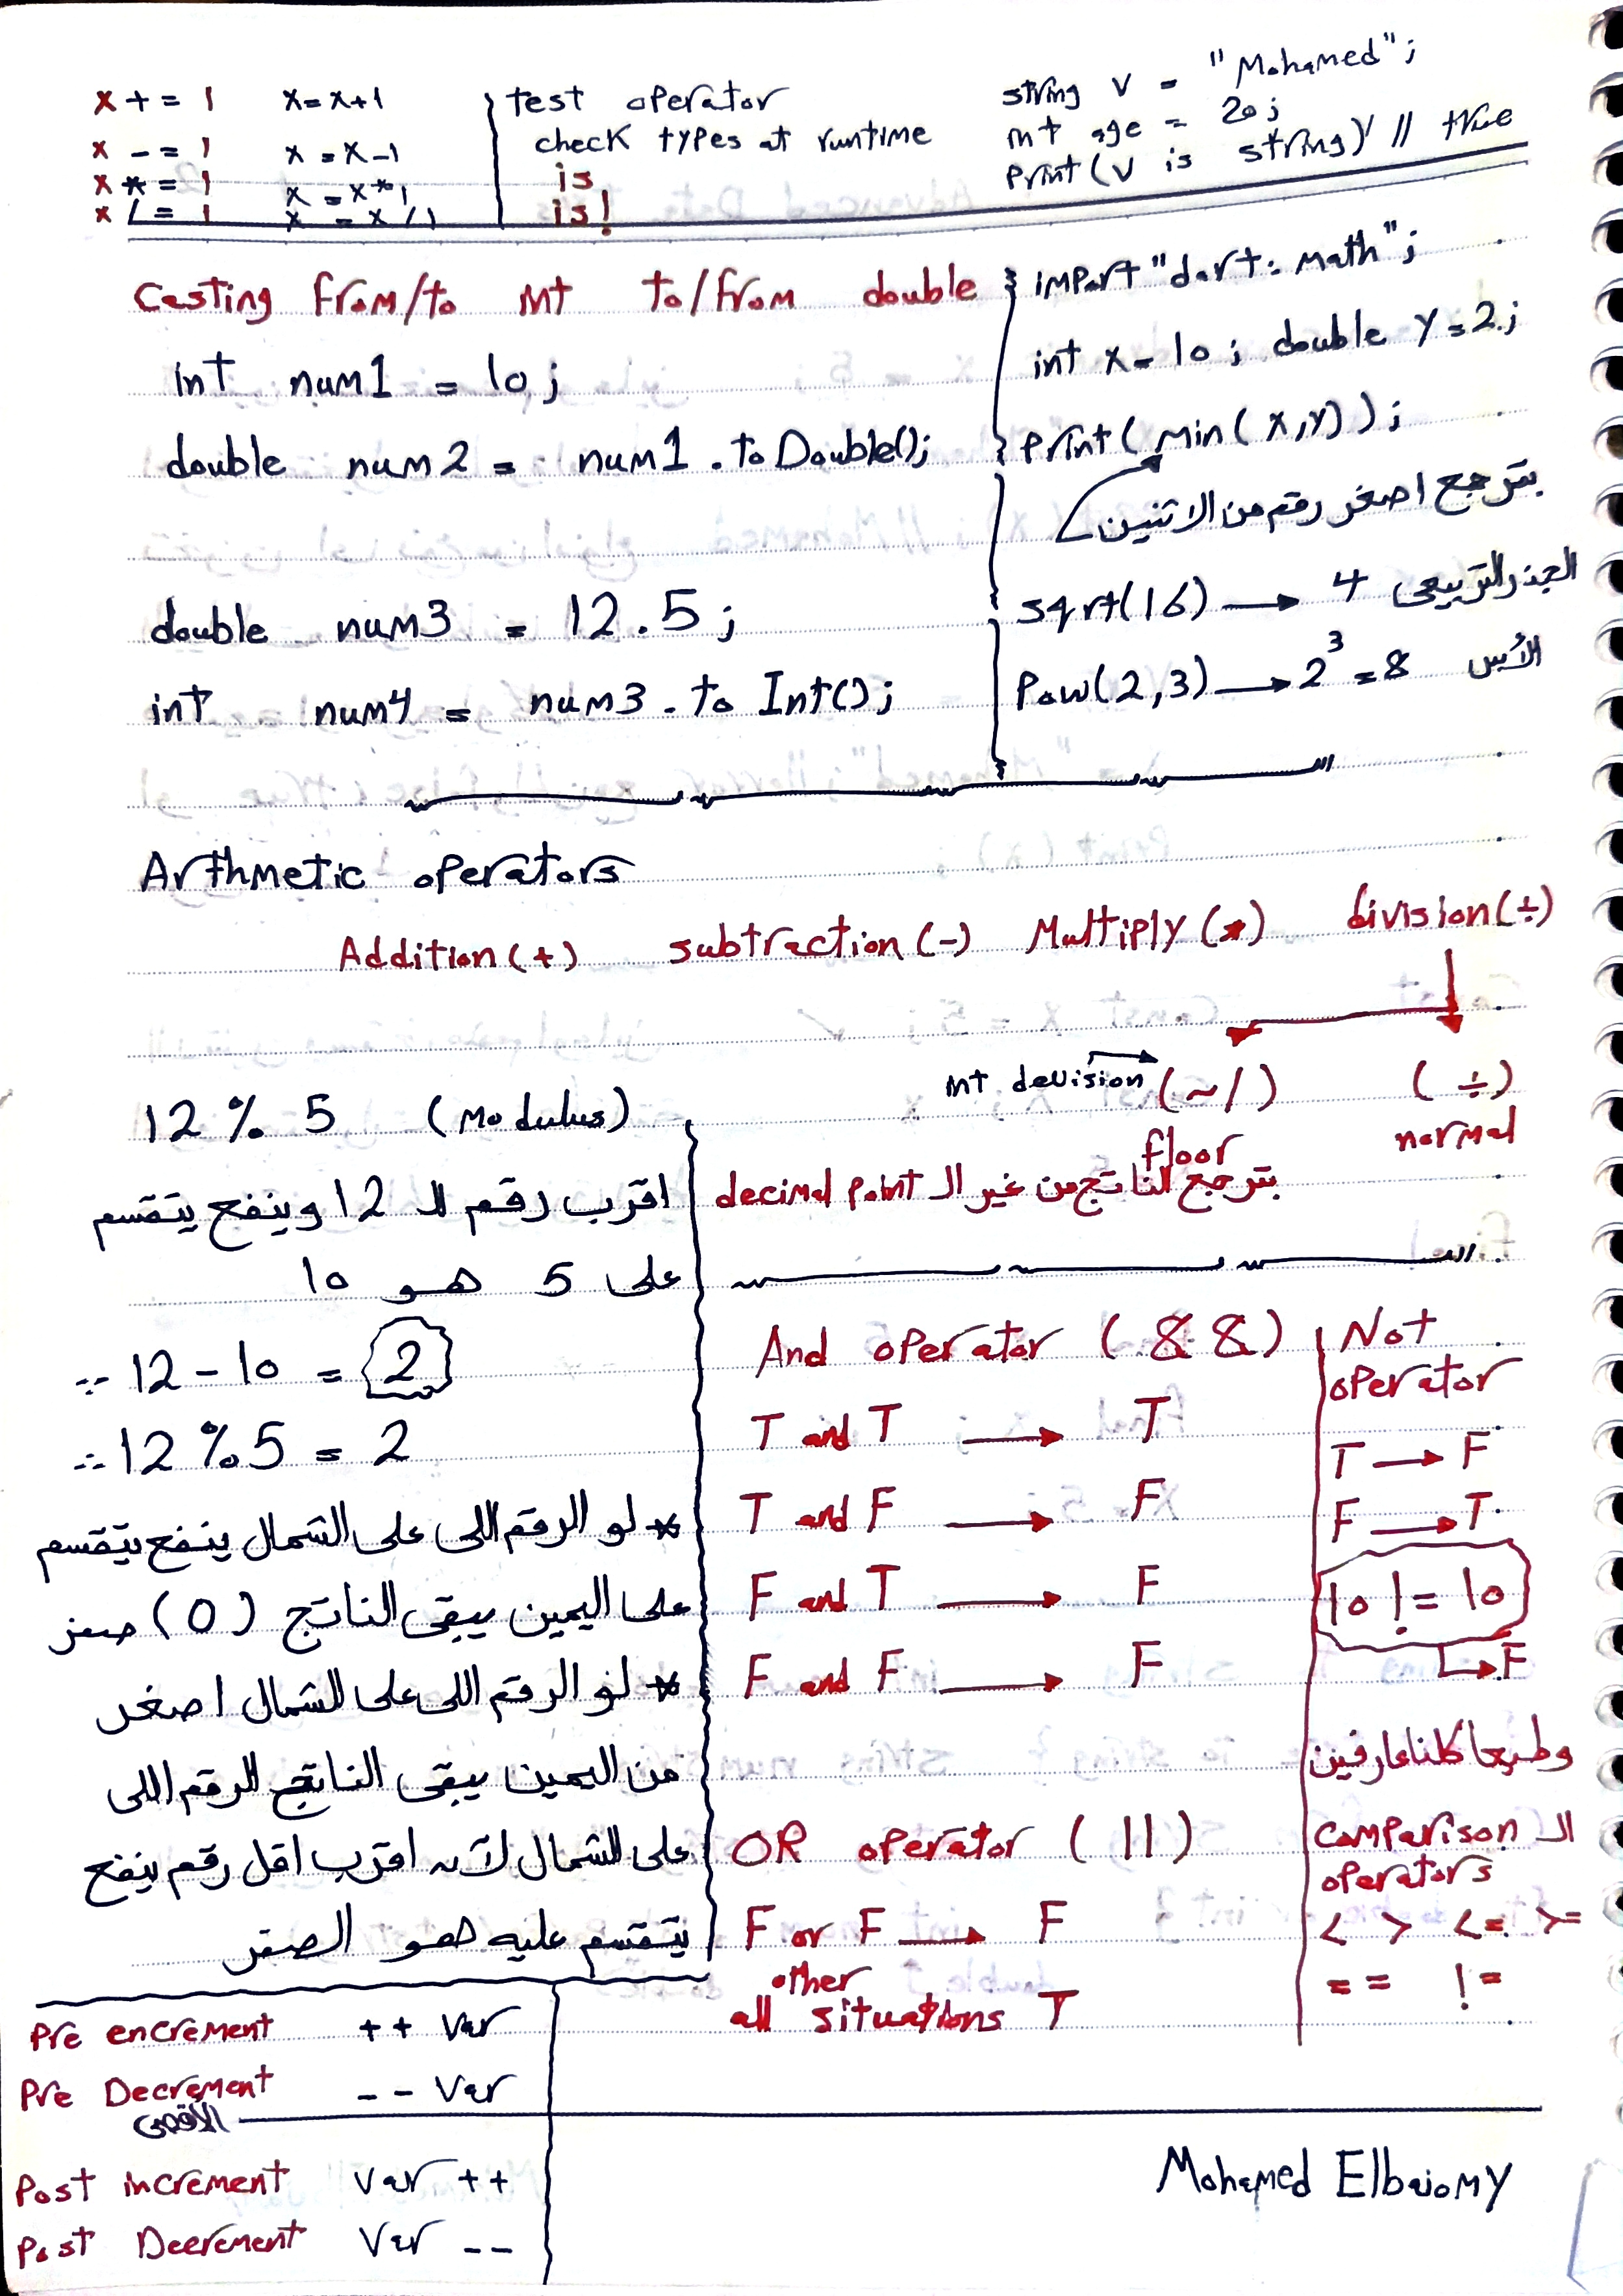 x += 1    x = x+1
x -= 1    x = x-1
x *= 1    x = x*1
x /= 1    x = x/1
test operator
check types at runtime
is
is!
string v = "Mohamed";
int age = 20;
print(v is string) // true
Casting from/to int to/from double
int num1 = 10;
double num2 = num1.toDouble();
double num3 = 12.5;
int num4 = num3.to Int();
import "dart:math";
int x = 10; double y = 2.;
print(min(x,y));
بترجع اصغر رقم من الاتنين
sqrt(16) → 4 الجذر التربيعى
Pow(2,3) → 2³ = 8 الأس
Arthmetic operators
Addition(+) subtraction(-) Multiply(*) division(÷)
int devision (~/) (÷)
floor normal
بترجع الناتج من غير الـ decimal point
12 % 5 (Modulus)
اقرب رقم لـ 12 وينفع يتقسم
على 5 هو 10
∴ 12 - 10 = 2
∴ 12 % 5 = 2
* لو الرقم اللى على الشمال ينفع يتقسم
على اليمين يبقى الناتج (0) صفر
* لو الرقم اللى على الشمال اصغر
من اليمين يبقى الناتج الرقم اللى
على الشمال لأن اقرب اقل رقم ينفع
يتقسم عليه هو الصفر
And operator (&&)
T and T → T
T and F → F
F and T → F
F and F → F
OR operator (||)
F or F → F
all other situations T
Not
operator
T → F
F → T
10 != 10
→ F
وطبعا كلنا عارفين
الـ comparison
operators
< > <= >=
== !=
Pre encrement ++ var
Pre Decrement -- Var
الأقصى
Post increment Var ++
Post Decrement Var --
Mohamed Elbaiomy